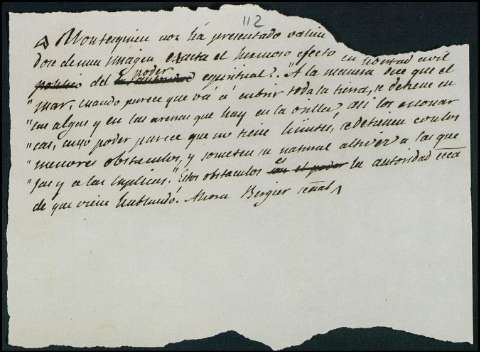 112
Montesquieu nos há presentado valien
dose de una imágen exacta el hermoso efecto en libertad civil
politico del poder la autoridad espiritual. "A la manera dice que el
"mar, cuando parece que vá á cubrir toda la tierra, se detiene en
"las algas y en las arenas que hay en la orilla; así los monar
"cas, cuyo poder parece que no tiene limites, se detienen con los
"menores obstaculos, y someten su natural altivez a las que
"jas y a las suplicas." Estos obstaculos es en el poder la autoridad ecca
de que viene hablando. Ahora Bergier señal